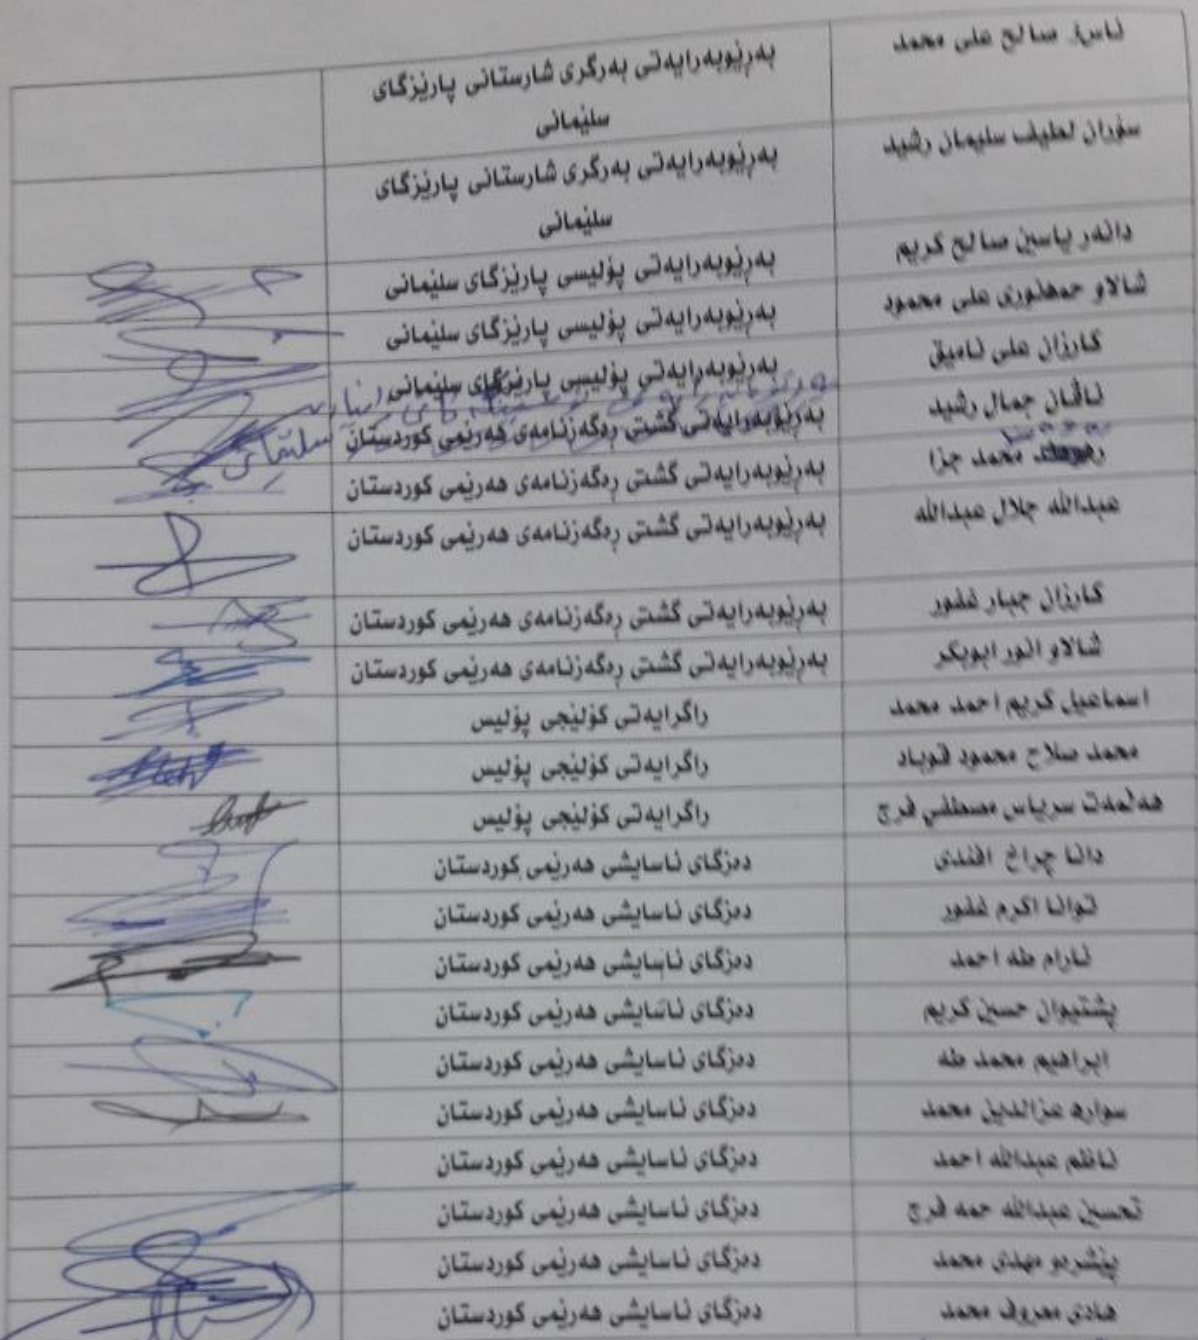 ناسۆ صالح علی محمد
بەڕێوبەرایەتی بەرگری شارستانی پارێزگای
سلێمانی
سۆران لطیف سلیمان رشید
بەڕێوبەرایەتی بەرگری شارستانی پارێزگای
سلێمانی
دانەر یاسین صالح کریم بەڕێوبەرایەتی پۆلیسی پارێزگای سلێمانی
شالاو حمەنوری علی محمود بەڕێوبەرایەتی پۆلیسی پارێزگای سلێمانی
کارزان علی نامیق بەڕێوبەرایەتی پۆلیسی پارێزگای سلێمانی
سلێمانی
ئاڤان جمال رشید بەڕێوبەرایەتی گشتی ڕەگەزنامەی هەرێمی کوردستان
محمد جزا بەڕێوبەرایەتی گشتی ڕەگەزنامەی هەرێمی کوردستان
عبدالله جلال عبدالله بەڕێوبەرایەتی گشتی ڕەگەزنامەی هەرێمی کوردستان
کارزان جبار غفور بەڕێوبەرایەتی گشتی ڕەگەزنامەی هەرێمی کوردستان
شالاو انور ابوبکر بەڕێوبەرایەتی گشتی ڕەگەزنامەی هەرێمی کوردستان
اسماعیل کریم احمد محمد راگرایەتی کۆلێجی پۆلیس
محمد صلاح محمود قوباد راگرایەتی کۆلێجی پۆلیس
هەلمەت سرپاس مصطفی فرج راگرایەتی کۆلێجی پۆلیس
دانا چراغ افندی دەزگای ئاسایشی هەرێمی کوردستان
توانا اکرم غفور دەزگای ئاسایشی هەرێمی کوردستان
ئارام طه احمد دەزگای ئاسایشی هەرێمی کوردستان
پشتیوان حسین کریم دەزگای ئاسایشی هەرێمی کوردستان
ابراهیم محمد طه دەزگای ئاسایشی هەرێمی کوردستان
سوارە عزالدین محمد دەزگای ئاسایشی هەرێمی کوردستان
ناظم عبدالله احمد دەزگای ئاسایشی هەرێمی کوردستان
تحسین عبدالله حمه فرج دەزگای ئاسایشی هەرێمی کوردستان
پێشرەو مهدی محمد دەزگای ئاسایشی هەرێمی کوردستان
هادی معروف محمد دەزگای ئاسایشی هەرێمی کوردستان